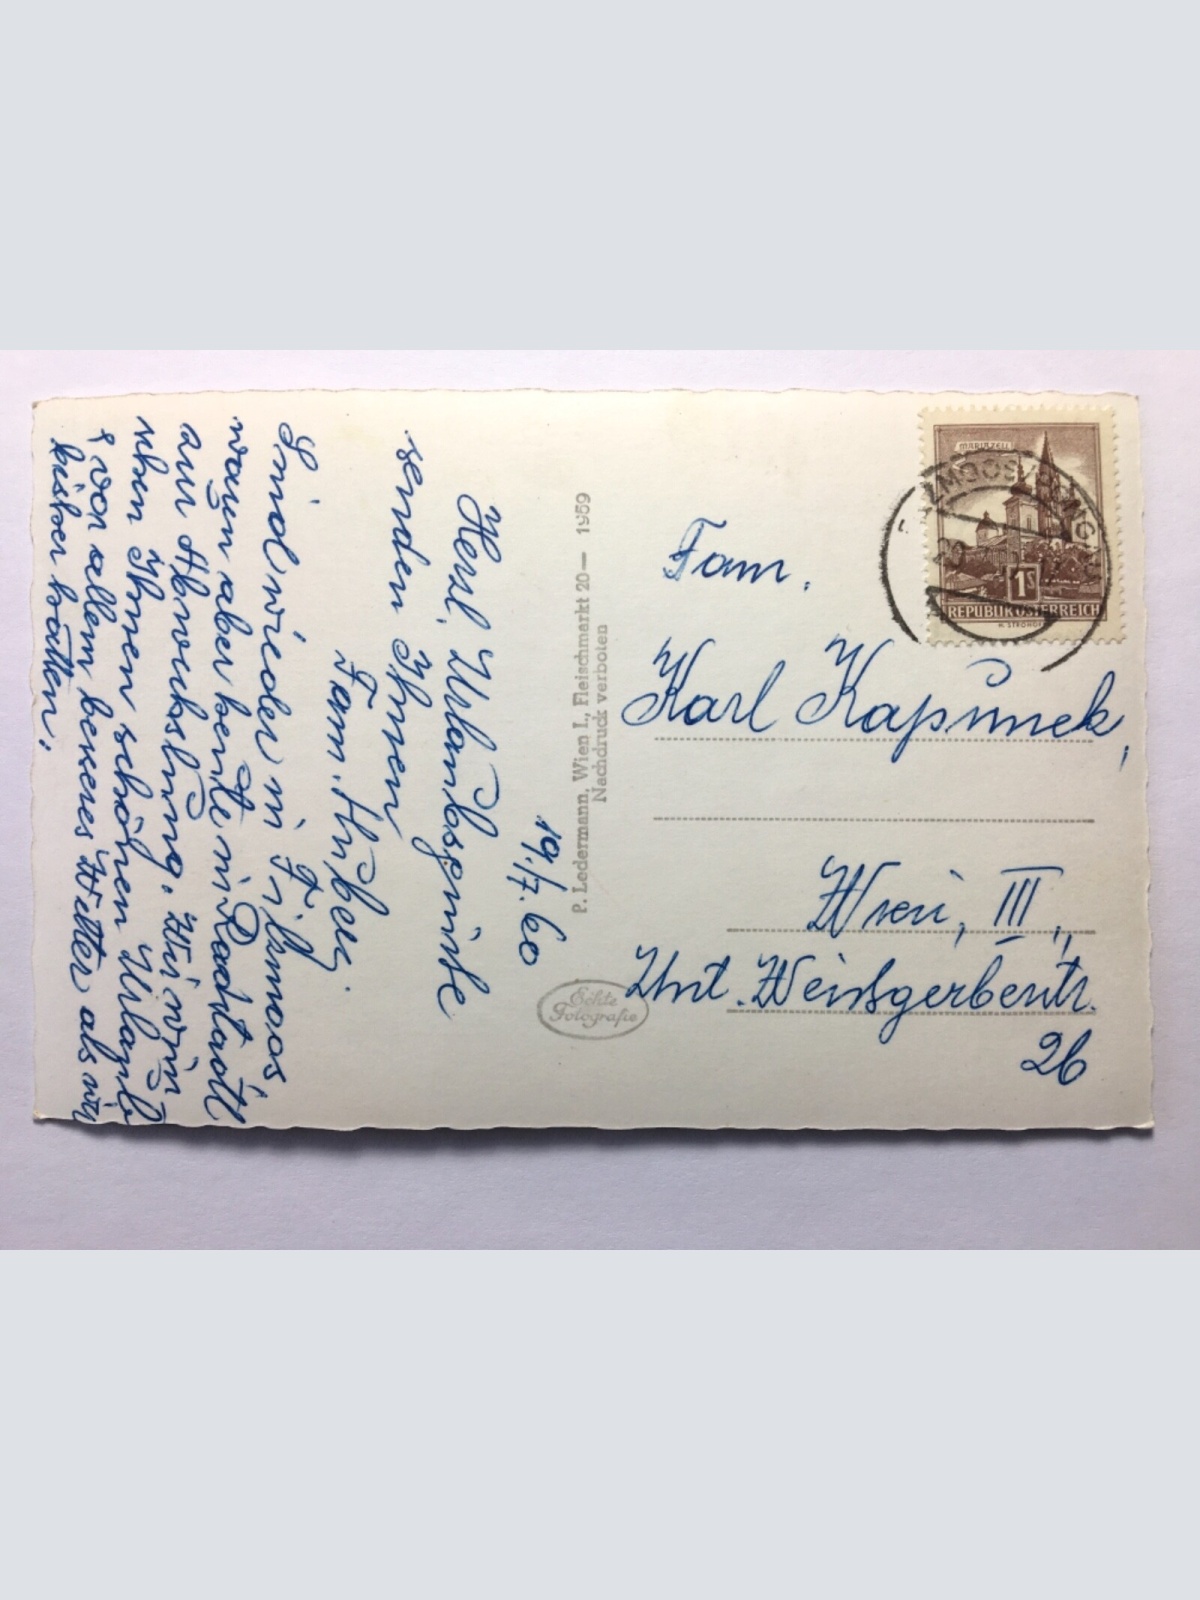 19./7.60
Herzl. Urlaubsgrüße
senden Ihnen
Fam. Huber
Sind wieder in Filzmoos,
waren aber heute in Radstadt
zur Abwechslung. Wir wün
schen Ihnen schönen Urlaub
& vor allem besseres Wetter als wir
bisher hatten.
P. Ledermann, Wien I., Fleischmarkt 20 — 1959
Nachdruck verboten
Echte
Fotografie
MARIAZELL
1S
REPUBLIK ÖSTERREICH
Fam.
Karl Kapunek,
Wien, III.,
Unt. Weißgerberstr.
26